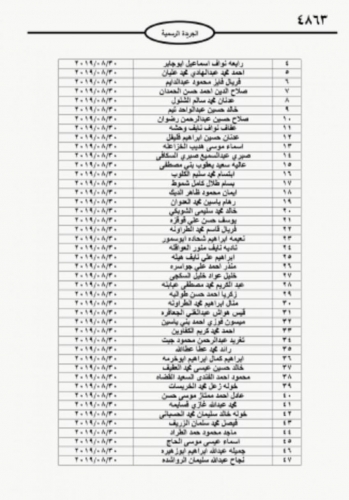 ٤٨٦٣
الجريدة الرسمية
٤ رابعه نواف اسماعيل ابوجابر ٢٠١٩/٠٨/٣٠
٥ احمد محمد عبدالهادي محمد عليان ٢٠١٩/٠٨/٣٠
٦ فريال فايز محمود عبدالدايم ٢٠١٩/٠٨/٣٠
٧ صلاح الدين احمد حسن الحمدان ٢٠١٩/٠٨/٣٠
٨ عدنان محمد سالم الشلول ٢٠١٩/٠٨/٣٠
٩ خالد حسين عبدالواحد تيم ٢٠١٩/٠٨/٣٠
١٠ صلاح حسين عبدالرحمن رضوان ٢٠١٩/٠٨/٣٠
١١ عفاف نواف نايف وحشه ٢٠١٩/٠٨/٣٠
١٢ عدنان حسين ابراهيم فليفل ٢٠١٩/٠٨/٣٠
١٣ اسماء موسى هديب الخزاعله ٢٠١٩/٠٨/٣٠
١٤ صبري عبدالسميع صبري السكافي ٢٠١٩/٠٨/٣٠
١٥ عاليه سعيد يعقوب بني مصطفى ٢٠١٩/٠٨/٣٠
١٦ ابتسام محمد سليم الكلوب ٢٠١٩/٠٨/٣٠
١٧ بسام طلال كامل شموط ٢٠١٩/٠٨/٣٠
١٨ ايمان محمود ظاهر الديك ٢٠١٩/٠٨/٣٠
١٩ رهام ياسين محمد العدوان ٢٠١٩/٠٨/٣٠
٢٠ خالد محمد سليمى الشوبكي ٢٠١٩/٠٨/٣٠
٢١ يوسف حسن علي قوقزه ٢٠١٩/٠٨/٣٠
٢٢ فريال قاسم محمد الطراونه ٢٠١٩/٠٨/٣٠
٢٣ نعيمه ابراهيم شحاده ابوسمور ٢٠١٩/٠٨/٣٠
٢٤ ناديه نايف منور العواقله ٢٠١٩/٠٨/٣٠
٢٥ ابراهيم علي نايف هيله ٢٠١٩/٠٨/٣٠
٢٦ منذر احمد علي جواسره ٢٠١٩/٠٨/٣٠
٢٧ خليل عواد خليل السكجي ٢٠١٩/٠٨/٣٠
٢٨ عبد الكريم محمد مصطفى عبابنه ٢٠١٩/٠٨/٣٠
٢٩ زكريا احمد حسن طوالبه ٢٠١٩/٠٨/٣٠
٣٠ منال ابراهيم محمد الطراونه ٢٠١٩/٠٨/٣٠
٣١ قيس هواش عبدالغني الجعافره ٢٠١٩/٠٨/٣٠
٣٢ ميسون فوزي احمد بني ياسين ٢٠١٩/٠٨/٣٠
٣٣ احمد محمد كريم الكفاوين ٢٠١٩/٠٨/٣٠
٣٤ تغريد عبدالرحمن محمود جبت ٢٠١٩/٠٨/٣٠
٣٥ رائد محمد عطا عطاالله ٢٠١٩/٠٨/٣٠
٣٦ ابراهيم كمال ابراهيم ابوخرمه ٢٠١٩/٠٨/٣٠
٣٧ خالد حسين عيسى محمد العفيف ٢٠١٩/٠٨/٣٠
٣٨ محمود احمد السعيد القضاه ٢٠١٩/٠٨/٣٠
٣٩ خوله زعل محمد الخريسات ٢٠١٩/٠٨/٣٠
٤٠ عادل احمد ممتاز موسى حسن ٢٠١٩/٠٨/٣٠
٤١ محمد عبدالله غازي قسايمه ٢٠١٩/٠٨/٣٠
٤٢ خوله خالد سليمان محمد الحسباني ٢٠١٩/٠٨/٣٠
٤٣ فيصل محمد سلمان الزريف ٢٠١٩/٠٨/٣٠
٤٤ ماجد محمود حمد الطراد ٢٠١٩/٠٨/٣٠
٤٥ اسماء عيسى موسى الحاج ٢٠١٩/٠٨/٣٠
٤٦ جميله عبدالله ابراهيم ابوزهيره ٢٠١٩/٠٨/٣٠
٤٧ نجاح عبدالله سليمان الرواشده ٢٠١٩/٠٨/٣٠